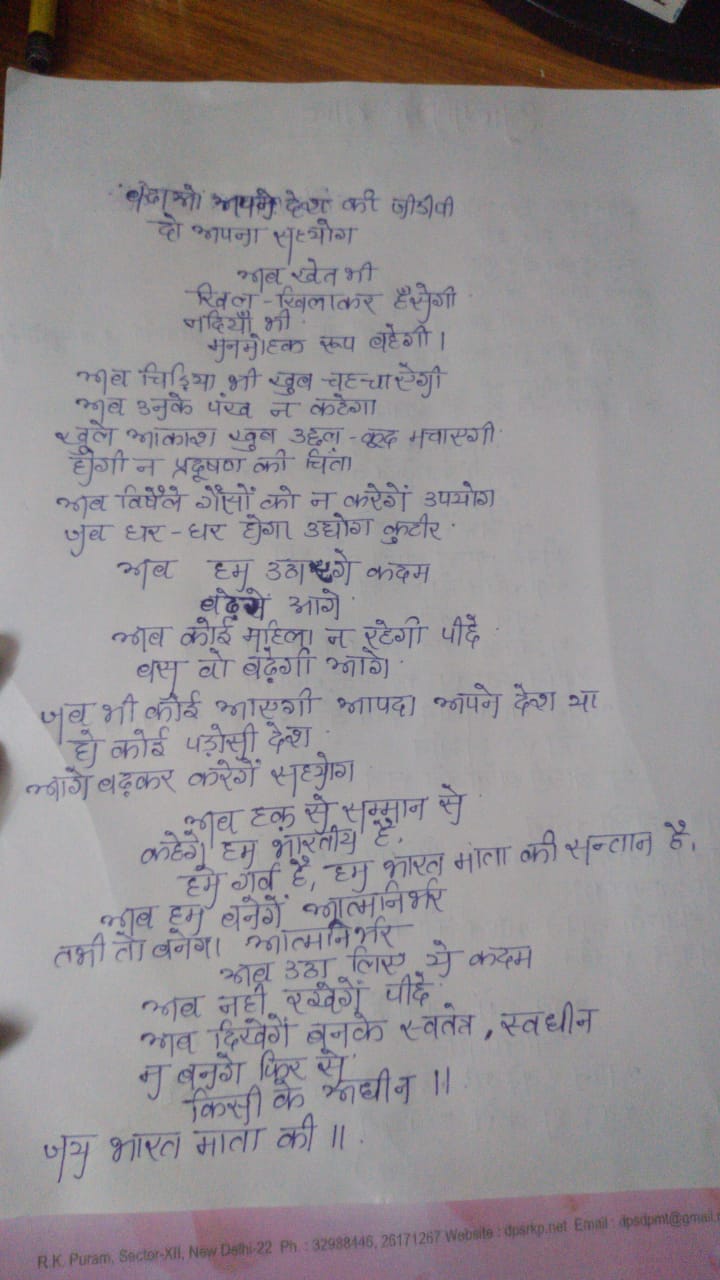 बढाओ अपने देश की जीडीपी
दो अपना सहयोग
अब खेत भी
खिल-खिलाकर हँसेगी
नदियाँ भी
मनमोहक रूप बहेगी।
अब चिड़िया भी खुब चहचाएगी
अब उनके पंख न कटेगा
खुले आकाश खुब उछल-कूद मचाएगी
होगी न प्रदूषण की चिंता
अब विषैले गैसों को न करेगें उपयोग
जब घर-घर होगा उद्योग कुटीर
अब हम उठाएगे कदम
बढ़ेगे आगे
अब कोई महिला न रहेगी पीछे
बस वो बढ़ेगी आगे
जब भी कोई आएगी आपदा अपने देश या
हो कोई पड़ोसी देश
आगे बढ़कर करेगें सहयोग
अब हक से सम्मान से
कहेगें हम भारतीय है,
हमे गर्व है, हम भारत माता की सन्तान है,
अब हम बनेगें आत्मानिर्भर
तभी तो बनेगा आत्मानिर्भर
अब उठा लिए ये कदम
अब नही रखेगें पीछे
अब दिखेगें बनके स्वतंत्र, स्वधीन
न बनगे फिर से
किसी के अधीन ॥
जय भारत माता की ॥
R.K. Puram, Sector-XII, New Delhi-22 Ph. : 32988446, 26171267 Website : dpsrkp.net Email : dpsdpmt@gmail.